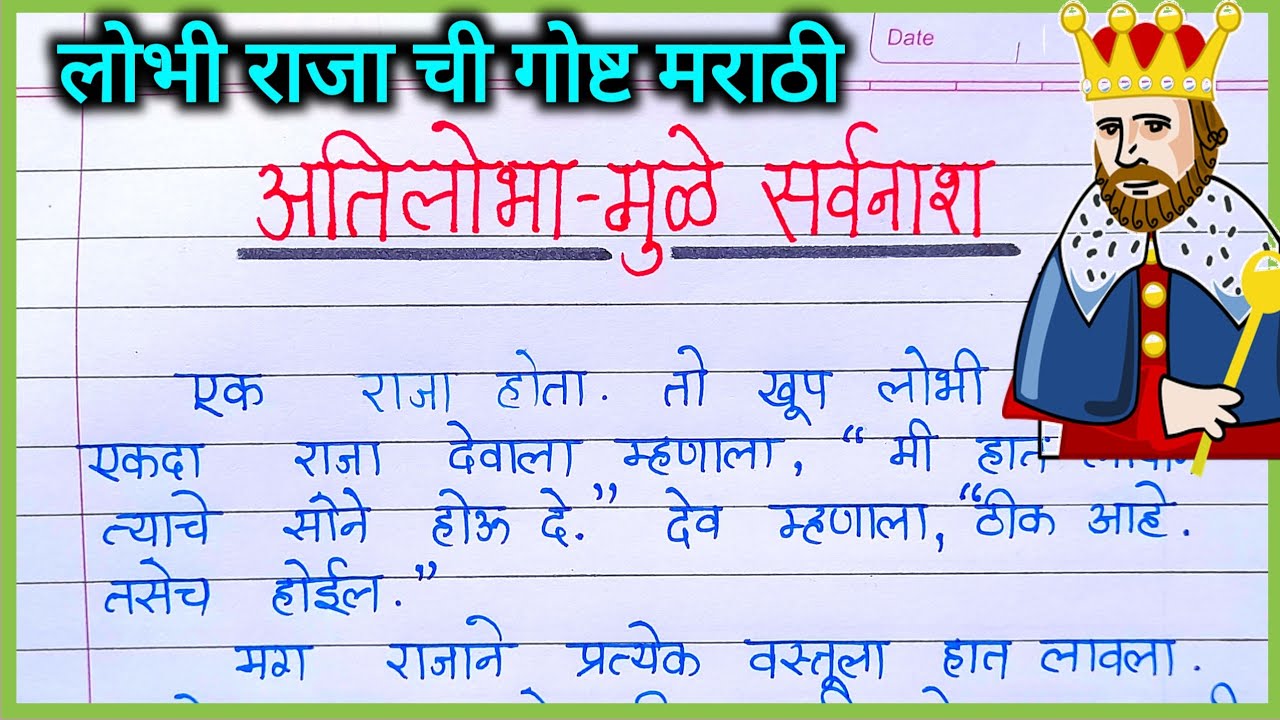 लोभी राजा ची गोष्ट मराठी
Date
अतिलोभा-मुळे सर्वनाश
एक राजा होता. तो खूप लोभी
एकदा राजा देवाला म्हणाला, “ मी हात
त्याचे सोने होऊ दे.” देव म्हणाला, “ठीक आहे.
तसेच होईल.”
मग राजाने प्रत्येक वस्तूला हात लावला.